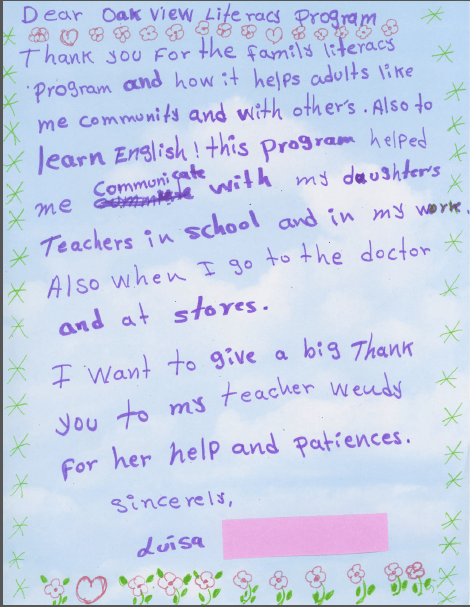 Dear Oak View Literacy Program
Thank you For the family literacy
Program and how it helps adults like
me community and with other's. Also to
learn English! this Program helped
me Communicate with my daughter's
Teachers in school and in my work.
Also when I go to the doctor
and at stores.
I want to give a big Thank
you to my teacher Wendy
For her help and patiences.
Sincerely,
Luisa